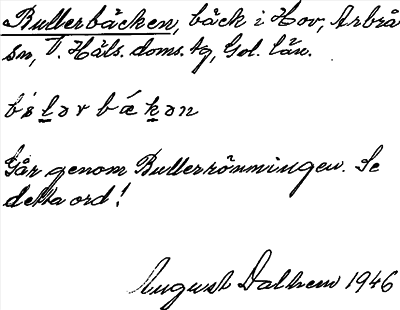 Bullerbäcken, bäck i Hov, Arbrå
sn, V. Häls. doms. tg, Gol. län.
Går genom Bullerrönningen. Se
detta ord!
August Dalhem 1946